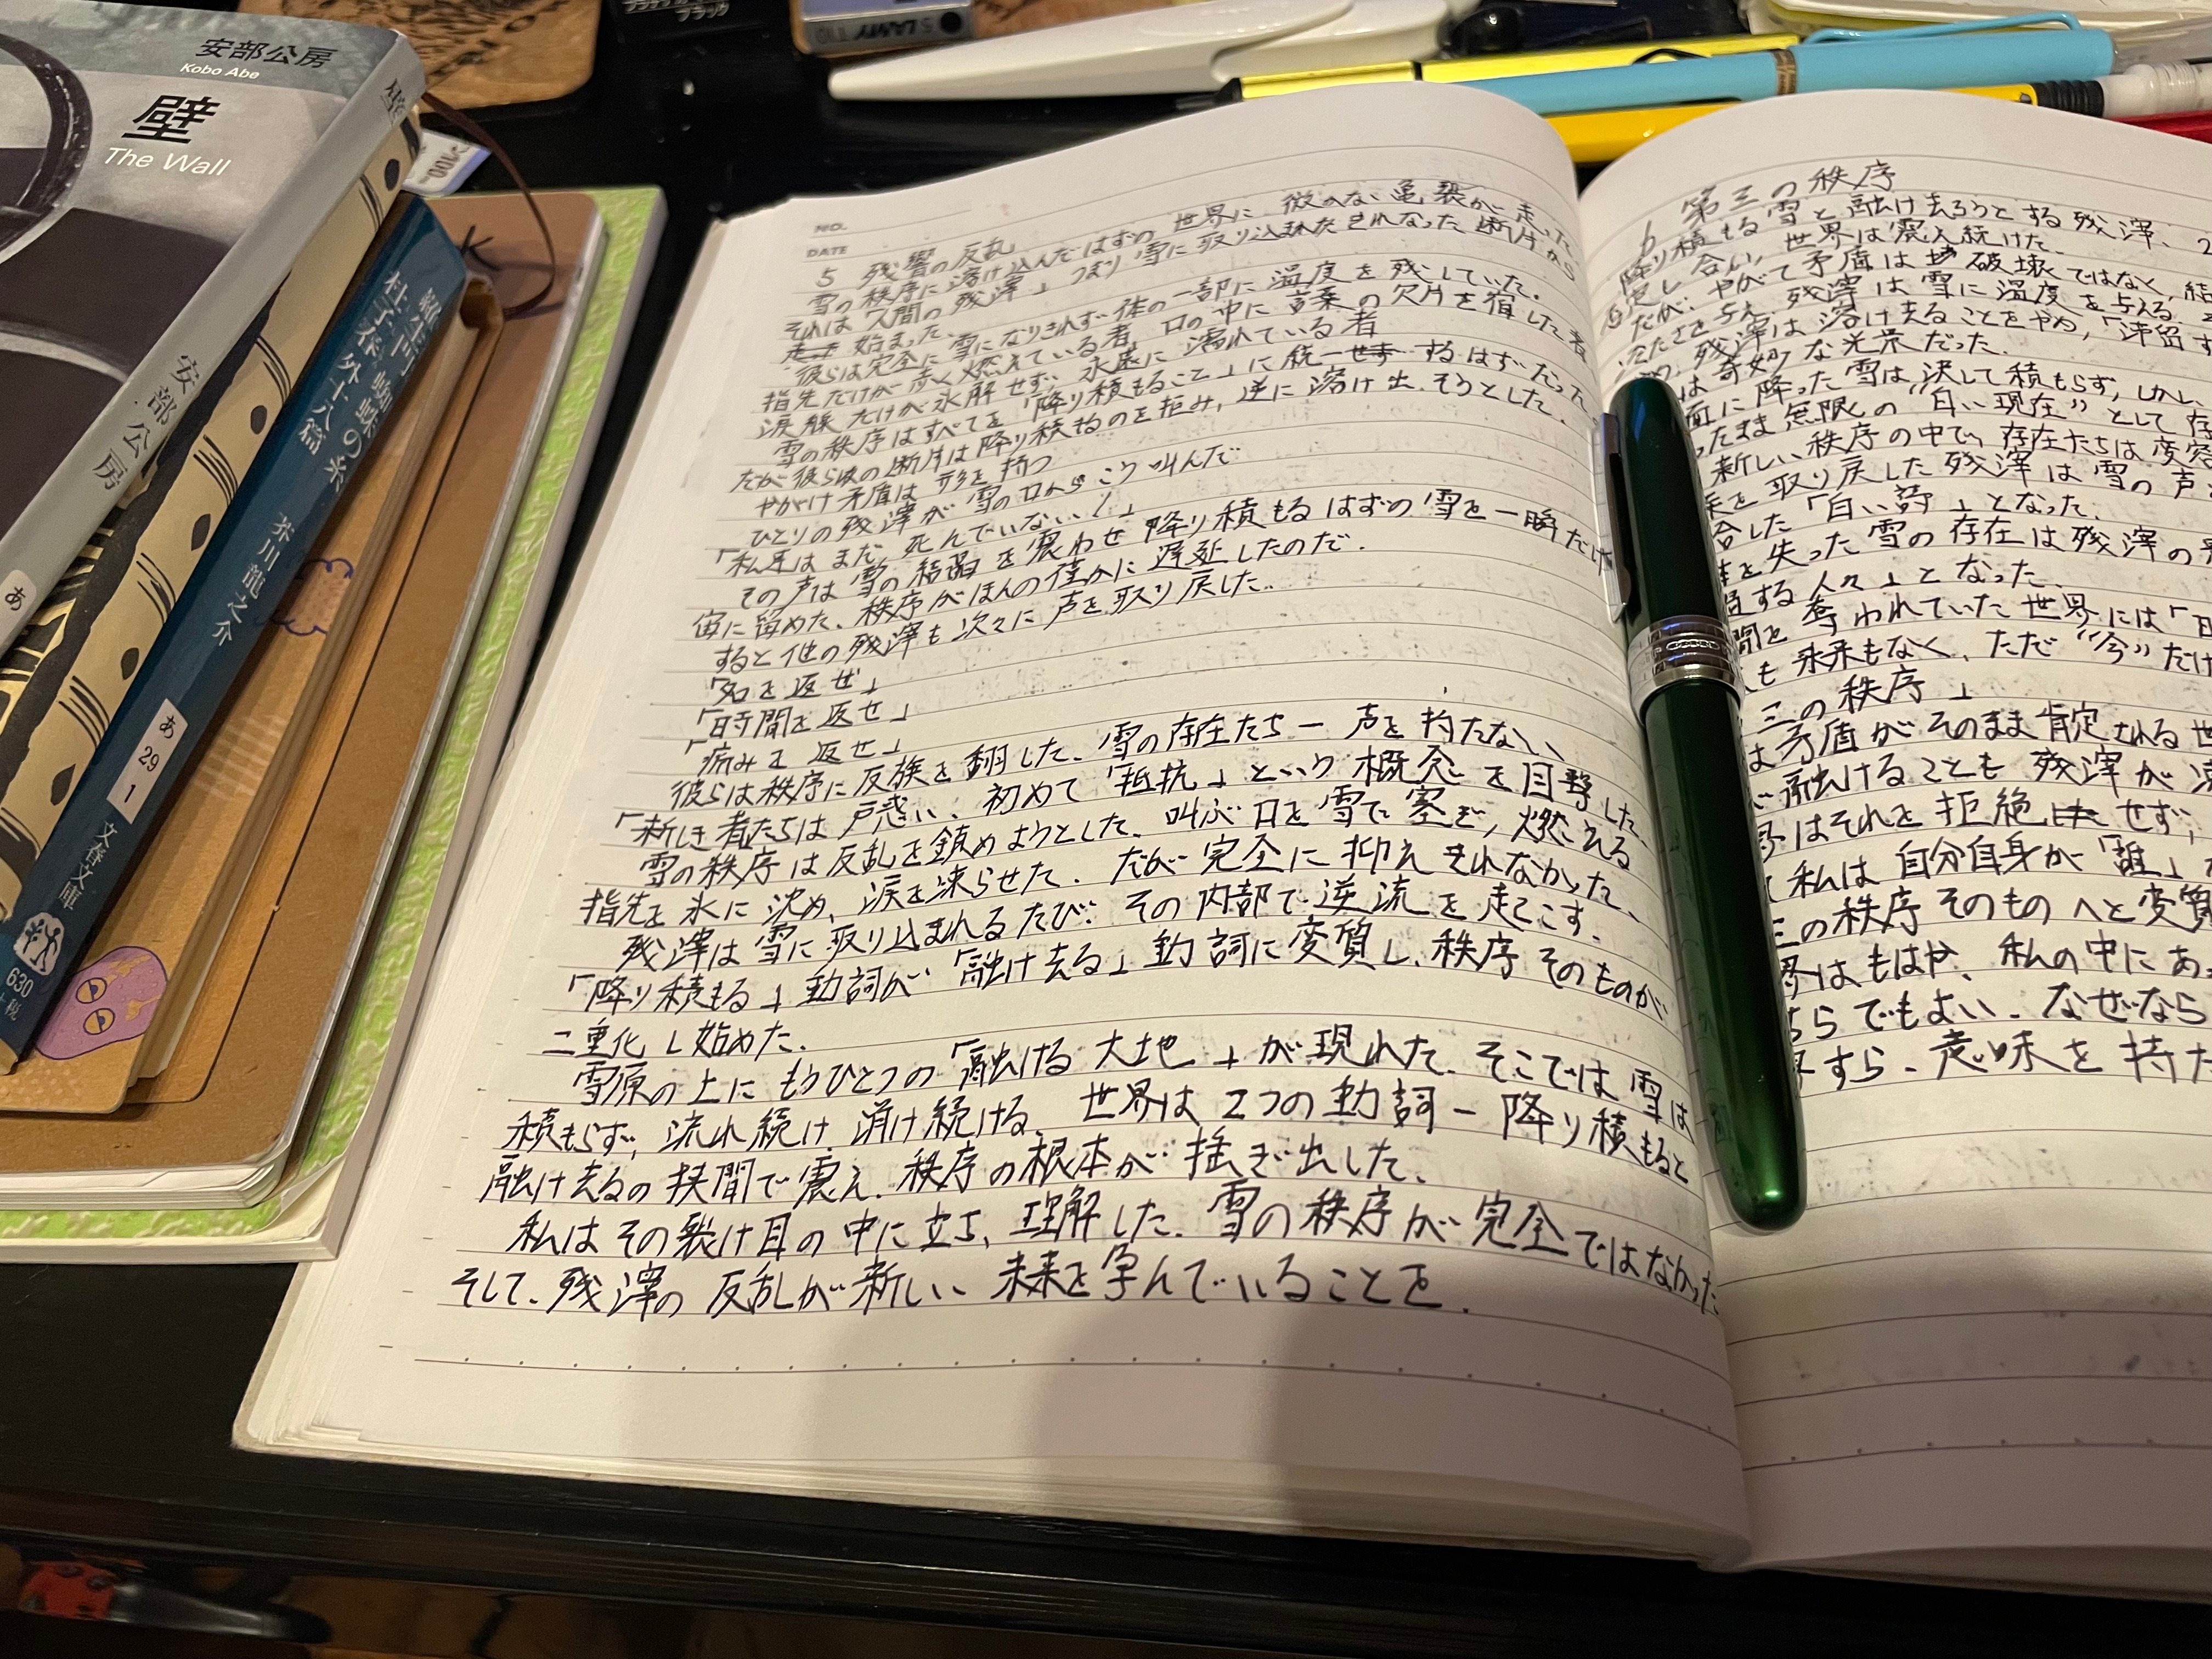 安部公房
Kobo Abe
壁
The Wall
壁
安部公房
あ
羅生門 蜘蛛の糸
杜子春 外十八篇
芥川龍之介
あ
29
1
文春文庫
630
+税
LAMY T10
ブラック
NO.
DATE
5 残響の反乱
雪の秩序に溶け込んだはずの世界に、微かな亀裂が走った
それは「人間の残滓」つまり雪に取り込まれきれなかった断片から
始まった
彼らは完全に雪になりきれず体の一部に温度を残していた.
指先だけが赤く燃えている者、口の中に言葉の欠片を宿した者
涙腺だけが氷解せず、永遠に濡れている者
雪の秩序はすべてを「降り積もること」に統一するはずだった
だが彼らの断片は降り積るのを拒み、逆に溶け出そうとした.
やがて矛盾は形を持つ
ひとりの残滓が雪の口からこう叫んだ
「私達はまだ死んでいない!」
その声は雪の結晶を震わせ降り積もるはずの雪を一瞬だけ
宙に留めた、秩序がほんの僅かに遅延したのだ.
すると他の残滓も次々に声を取り戻した..
「名を返せ」
「時間を返せ」
「痛みを返せ」
彼らは秩序に反旗を翻した、雪の存在たち－声を持たない
「新しき者たちは戸惑い、初めて「抵抗」という概念を目撃した、
雪の秩序は反乱を鎮めようとした、叫ぶ口を雪で塞ぎ，燃える
指先を氷に沈め、涙を凍らせた. だが完全に抑えきれなかった、
残滓は雪に取り込まれるたび、その内部で逆流を起こす.
「降り積もる」動詞が「融け去る」動詞に変質し、秩序そのものが
二重化し始めた.
雪原の上にもうひとつの「融ける大地」が現れた. そこでは雪は
積もらず、流れ続け、溶け続ける、世界は2つの動詞－降り積もると
融け去るの狭間で震え、秩序の根本が揺ぎ出した、
私はその裂け目の中に立ち、理解した. 雪の秩序が完全ではなかった
そして、残滓の反乱が新しい未来を孕んでいることを.
6 第三の秩序
降り積もる雪と融け去ろうとする残滓、2
合い，世界は震え続けた.
だが、やがて矛盾は破壊ではなく、結
たさを与え、残滓は雪に温度を与える.
残滓は溶け去ることをやめ，「滞留す
は奇妙な光景だった.
面に降った雪は決して積もらず，しかし、
ったまま無限の“白い現在”として存
新しい秩序の中で，存在たちは変容
を取り戻した残滓は雪の声
合した「白い詩」となった.
を失った雪の存在は残滓の
する人々」となった.
間を奪われていた世界には「
も未来もなく、ただ“今”だけ
三の秩序」
は矛盾がそのまま肯定される世
融けることも残滓が
はそれを拒絶せず，
私は自分自身が「誰」
三の秩序そのものへと変質
界はもはや、私の中にあ
ちらでもよい. なぜなら
すら、意味を持た